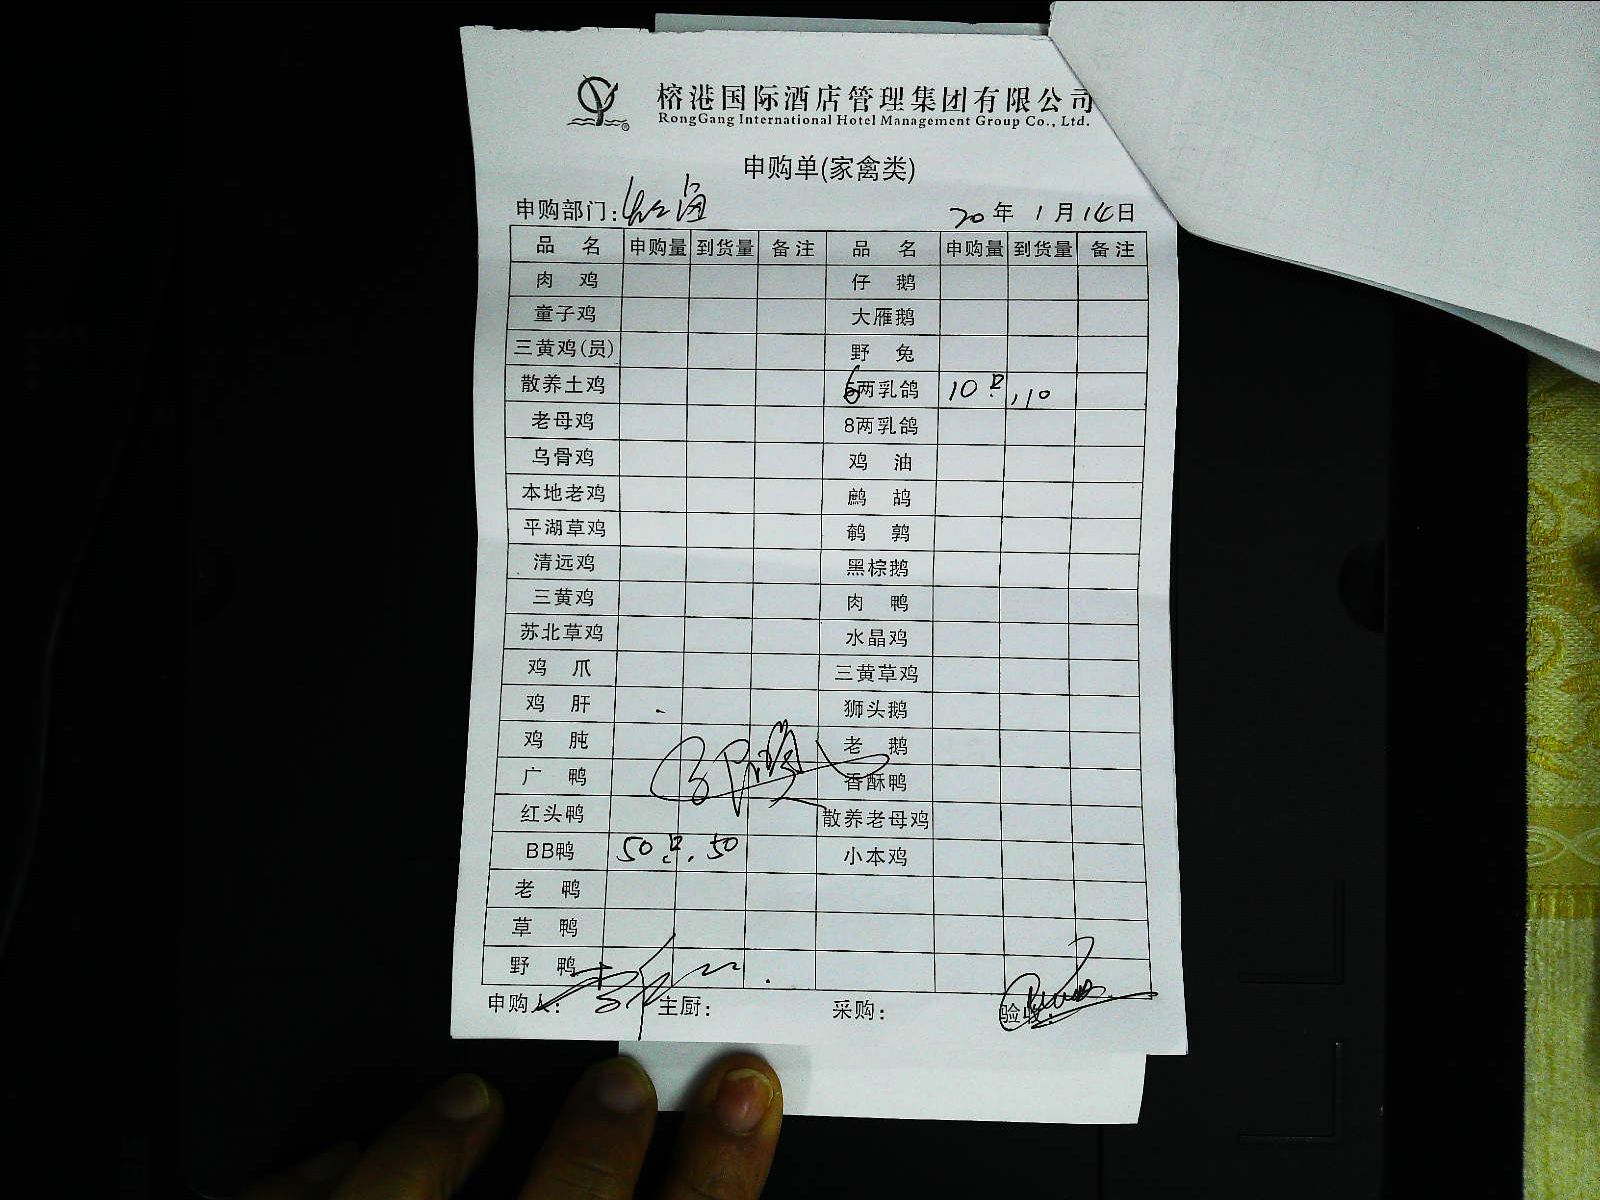 榕港国际酒店管理集团有限公司
RongGang International Hotel Management Group Co., Ltd.
申购单(家禽类)
申购部门: 20年 1月14日
品 名 申购量 到货量 备注 品 名 申购量 到货量 备注
肉 鸡 仔 鹅
童子鸡 大雁鹅
三黄鸡(员) 野 兔
散养土鸡 6两乳鸽 10只 10
老母鸡 8两乳鸽
乌骨鸡 鸡 油
本地老鸡 鹧 鸪
平湖草鸡 鹌 鹑
清远鸡 黑棕鹅
三黄鸡 肉 鸭
苏北草鸡 水晶鸡
鸡 爪 三黄草鸡
鸡 肝 狮头鹅
鸡 肫 老 鹅
广 鸭 香酥鸭
红头鸭 散养老母鸡
BB鸭 50只 50 小本鸡
老 鸭
草 鸭
野 鸭
申购人: 主厨: 采购: 验收: